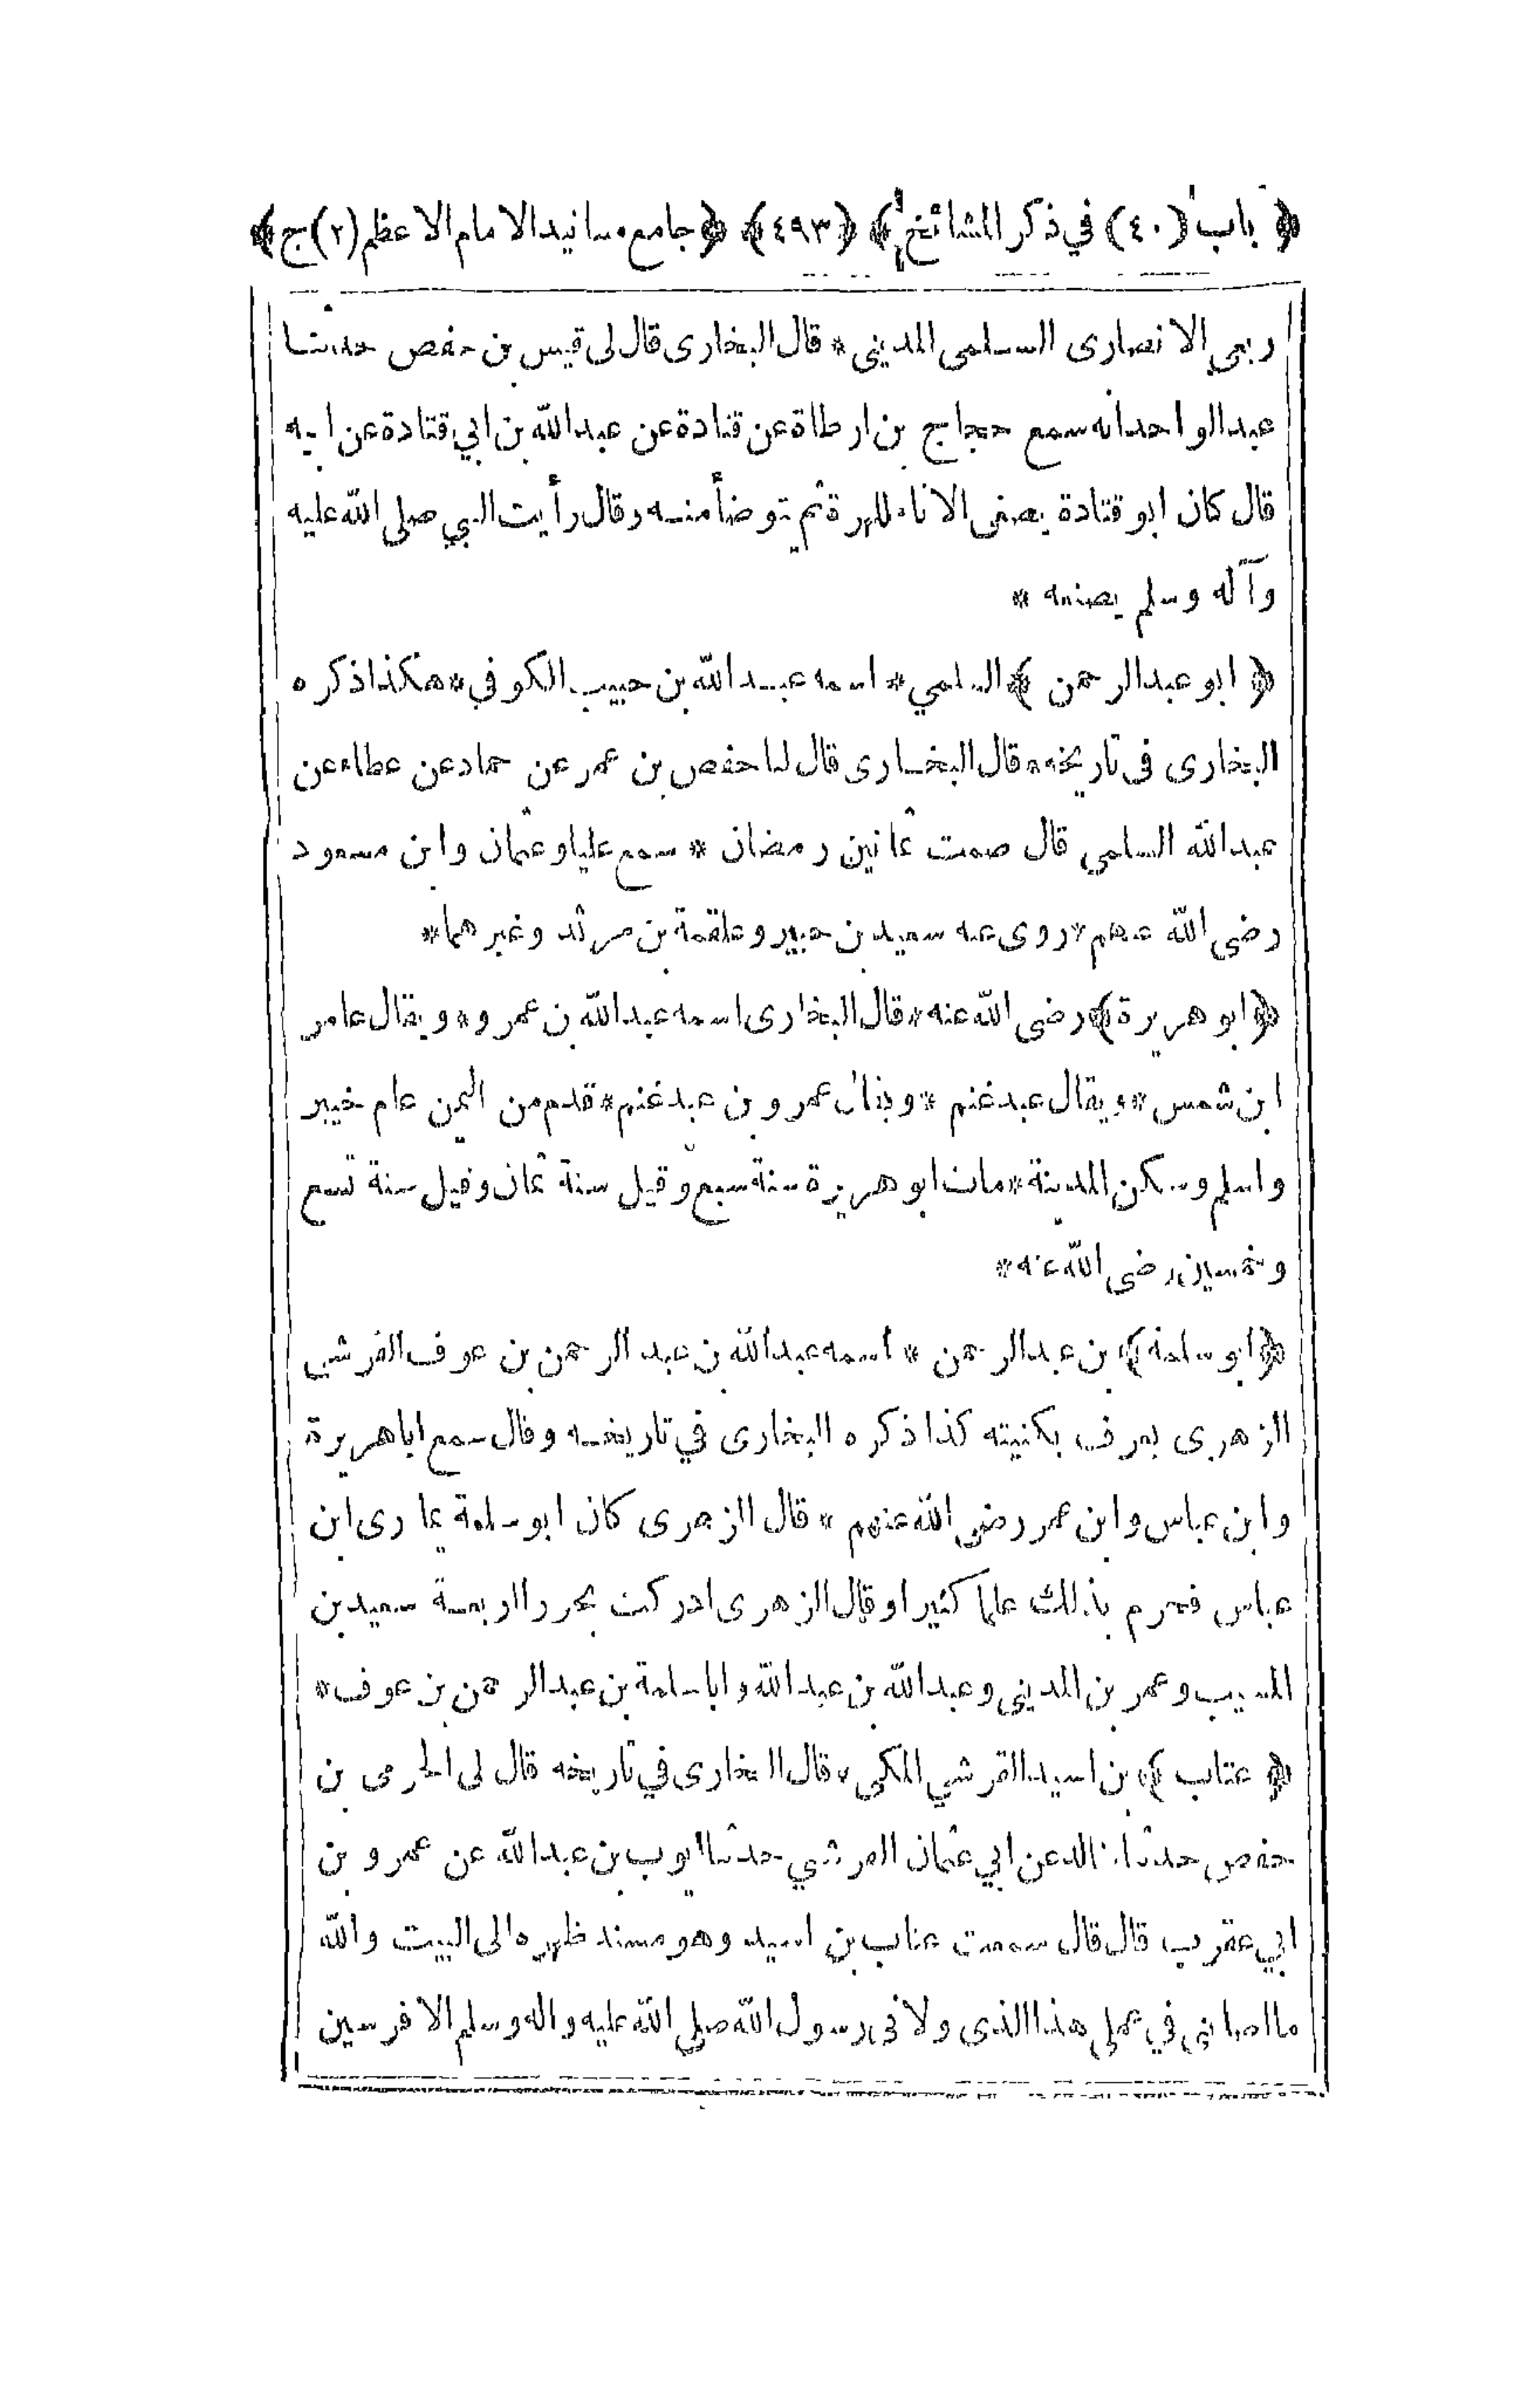 ﴿ باب (٤٠) في ذكر المشائخ ﴾ ﴿٤٩٣﴾ ﴿ جامع مسانيد الامام الاعظم (٢) ج ﴾
ربعي الانصارى السلمى المدينى * قال البخارى قال لى قيس بن حفص حدثنا
عبدالواحد انه سمع حجاج بن ارطاة عن قتادة عن عبدالله بن ابي قتادة عن ابيه
قال كان ابو قتادة يصغى الاناء للهرة ثم يتوضأ منه وقال رأيت النبي صلى الله عليه
وآله وسلم يصنعه *
﴿ ابو عبدالرحمن ﴾ السلمي * اسمه عبدالله بن حبيب الكوفي * هكذا ذكره
البخارى فى تاريخه * قال البخارى قال لنا حفص بن عمر عن حماد عن عطاء عن
عبدالله السلمي قال صمت ثمانين رمضان * سمع عليا وعثمان وابن مسعود
رضى الله عنهم * روى عنه سعيد بن جبير وعلقمة بن مرثد وغيرهما *
﴿ ابو هريرة ﴾ رضى الله عنه * قال البخارى اسمه عبدالله بن عمرو * ويقال عامر
ابن شمس * ويقال عبد غنم * ويقال عمرو بن عبد غنم * قدم من اليمن عام خيبر
واسلم وسكن المدينة * مات ابو هريرة سنة سبع وقيل سنة ثمان وقيل سنة تسع
وخمسين رضى الله عنه *
﴿ ابو سلمة ﴾ بن عبدالرحمن * اسمه عبدالله بن عبد الرحمن بن عوف القرشى
الزهرى يعرف بكنيته كذا ذكره البخارى في تاريخه وقال سمع ابا هريرة
وابن عباس وابن عمر رضى الله عنهم * قال الزهرى كان ابو سلمة يمارى ابن
عباس فحرم بذلك علما كثيرا وقال الزهرى ادركت بحورا اربعة سعيد بن
المسيب وعمر بن المدينى وعبدالله بن عبدالله وابا سلمة بن عبدالرحمن بن عوف *
﴿ عتاب ﴾ بن اسيد القرشي المكى * قال البخارى في تاريخه قال لى الحرمى بن
حفص حدثنا خالد عن ابي عثمان القرشي حدثنا ايوب بن عبدالله عن عمرو بن
ابي عقرب قال قال سمعت عتاب بن اسيد وهو مسند ظهره الى البيت والله
ما اصابنى في عملى هذا الذى ولانى رسول الله صلى الله عليه واله وسلم الا